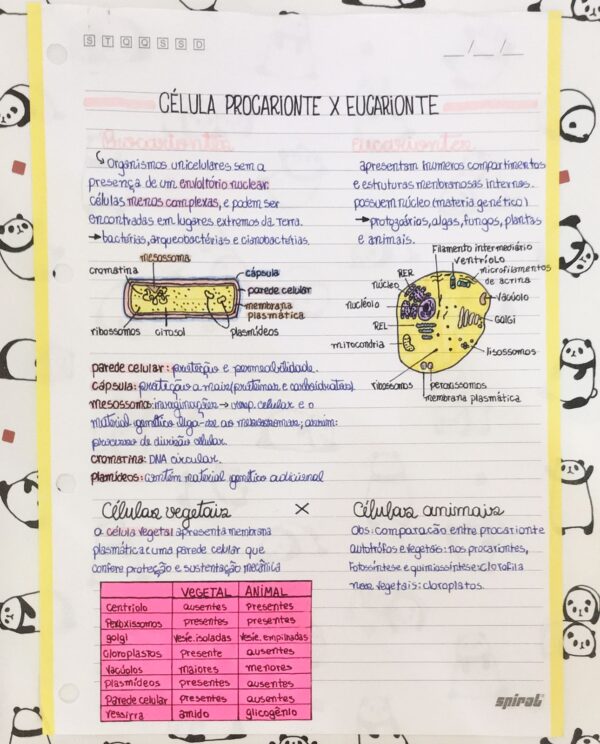 S T Q Q S S D
__/__/__
CÉLULA PROCARIONTE X EUCARIONTE
Procariontes
Organismos unicelulares sem a
presença de um envoltório nuclear.
células menos complexas, e podem ser
encontradas em lugares extremos da Terra.
→ bactérias, arqueobactérias e cianobactérias.
eucariontes
apresentam inúmeros compartimentos
e estruturas membranosas internas.
possuem núcleo (material genético).
→ protozoários, algas, fungos, plantas
e animais.
mesossoma
cromatina
cápsula
parede celular
membrana
plasmática
ribossomos
citosol
plasmídeos
Filamento intermediário
ventríolo
microfilamentos
de actina
RER
núcleo
vacúolo
nucléolo
GOLGI
REL
mitocondria
lisossomos
ribossomos
peroxissomos
membrana plasmática
parede celular: proteção e permeabilidade.
cápsula: proteção a mais (proteínas e carboidratos)
mesossoma: invaginações → resp. celular e o
material genético liga-se ao mesossomas; assim:
processo de divisão celular.
cromatina: DNA circular.
plamídeos: contém material genético adicional
Células vegetais X Células animais
a célula vegetal apresenta membrana
plasmática e uma parede celular que
confere proteção e sustentação mecânica
Obs: comparação entre procarionte
autótrofos e vegetais: nos procariontes,
Fotossíntese e quimiossíntese: clorofila
nos vegetais: cloroplatos.
VEGETAL ANIMAL
Centríolo ausentes Presentes
Peroxissomos presentes presentes
golgi vesíc. isoladas vesíc. empilhadas
Cloroplastos Presente ausentes
vacúolos maiores menores
Plasmídeos presentes ausentes
Parede celular presentes ausentes
amido glicogênio
spiral